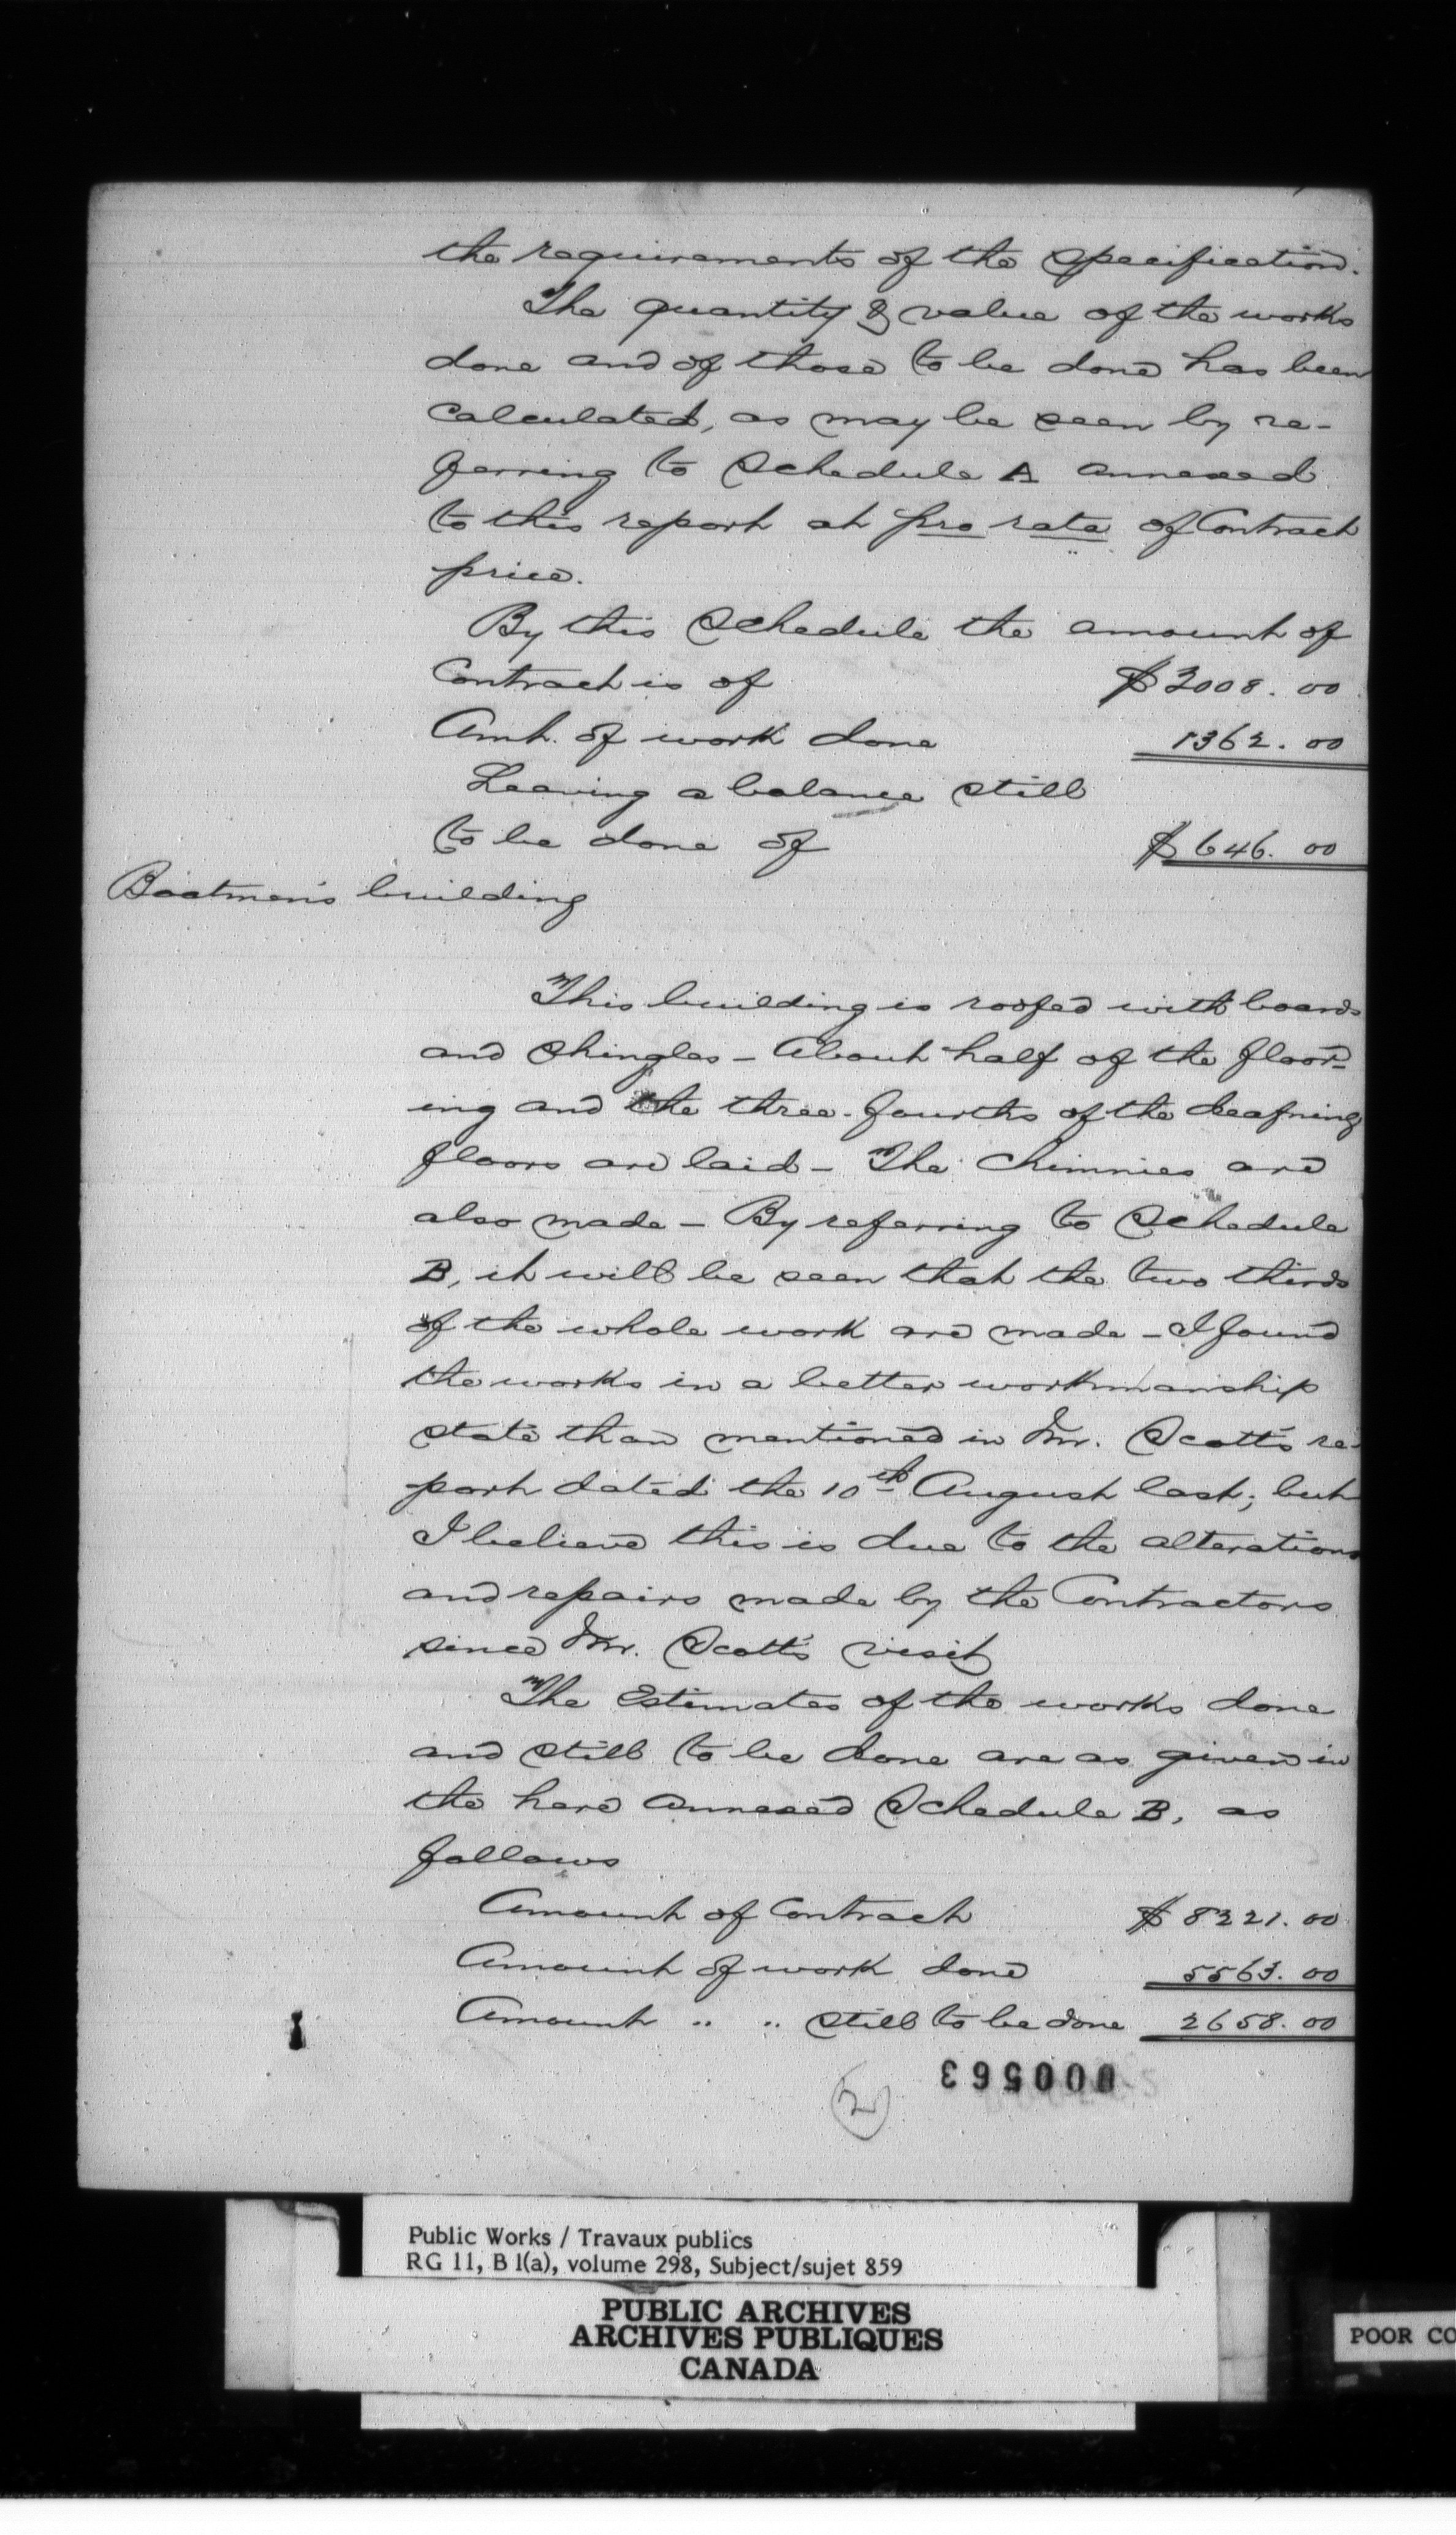 the requirements of the specification.
The quantity & value of the works
done and of those to be done has been
calculated, as may be seen by re-
ferring to Schedule A annexed
to this report at pro rata of Contract
price.
By this Schedule the amount of
Contract is of $2008.00
Amt. of work done 1362.00
Leaving a balance still
to be done of $646.00
Boatmen's building
This building is roofed with boards
and shingles - About half of the floor-
ing and the three-fourths of the deafning
floors are laid - The chimnies are
also made - By referring to Schedule
B, it will be seen that the two thirds
of the whole work are made - I found
the works in a better workmanship
state than mentioned in Mr. Scott's re-
port dated the 10th August last; but
I believe this is due to the alterations
and repairs made by the Contractors
since Mr. Scott's visit
The Estimates of the works done
and still to be done are as given in
the here annexed Schedule B, as
follows
Amount of Contract $8221.00
Amount of work done 5563.00
Amount " " still to be done 2658.00
000563
2
Public Works / Travaux publics
RG 11, B 1(a), volume 298, Subject/sujet 859
PUBLIC ARCHIVES
ARCHIVES PUBLIQUES
CANADA
POOR CO